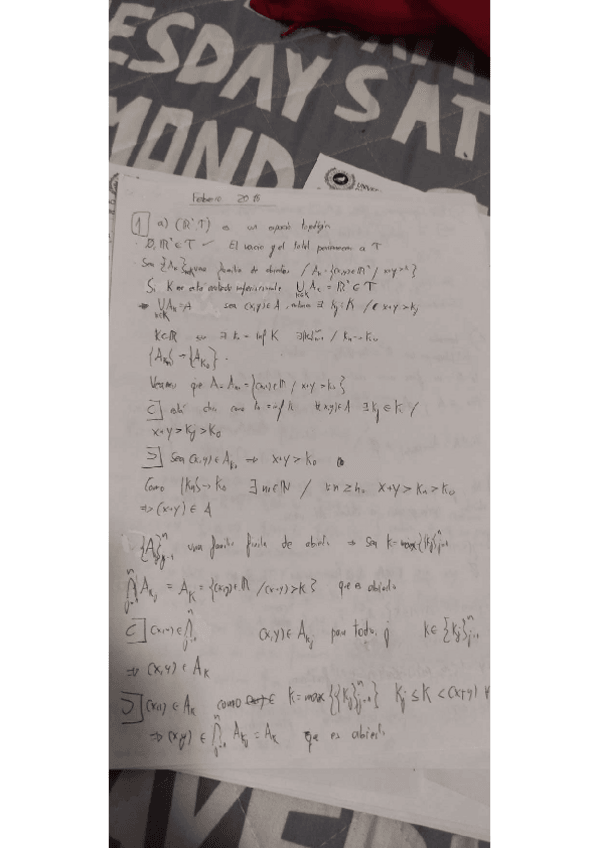 ESDAYS AT
MOND
Febrero 2018
1 a) (ℝ², T) es un espacio topológico
· Ø, ℝ² ∈ T ✓ El vacío y el total pertenecen a T
· Sea {A_k} una familia de abiertos / A_k = {(x,y)∈ℝ² / x+y>k}
Si K no está acotado inferiormente ⋃ A_k = ℝ² ∈ T
⋃ A_k = A sea (x,y)∈A, ∃ k_j ∈ K / x+y>k_j
k_0 = inf K / k_n → k_0
{A_{k_n}} → {A_{k_0}}.
Veamos que A = A_{k_0} = {(x,y)∈ℝ² / x+y>k_0}
⊂] está claro como k_0 = inf K ∀(x,y)∈A ∃ k_j ∈ K /
x+y > k_j > k_0
⊃] Sea (x,y)∈A_{k_0} ⇒ x+y > k_0
Como {k_n} → k_0 ∃ n_0∈ℕ / ∀n ≥ n_0 x+y > k_n > k_0
⇒ (x,y) ∈ A
{A_{k_j}}_{j=1}^n una familia finita de abiertos ⇒ sea K = max {k_j}_{j=1}^n
⋂_{j=1}^n A_{k_j} = A_K = {(x,y)∈ℝ² / (x+y)>K} que es abierto
⊂] (x,y) ∈ ⋂ (x,y) ∈ A_{k_j} para todo j K ∈ {k_j}_{j=1}^n
⇒ (x,y) ∈ A_K
⊃] (x,y) ∈ A_K como K = max {{k_j}_{j=1}^n} k_j ≤ K < (x+y) ∀
⇒ (x,y) ∈ ⋂_{j=1}^n A_{k_j} = A_K que es abierto